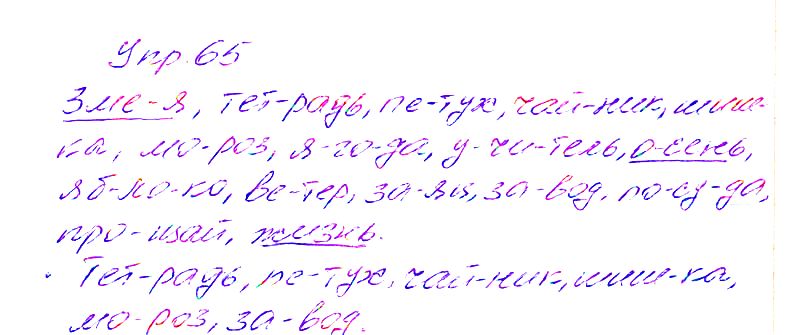 Упр. 65
Зме-я, тет-радь, пе-тух, чай-ник, шиш-
ка, мо-роз, я-го-да, у-чи-тель, о-сень,
яб-ло-ко, ве-тер, за-яц, за-вод, по-су-да,
про-щай, жизнь.
Тет-радь, пе-тух, чай-ник, шиш-ка,
мо-роз, за-вод.